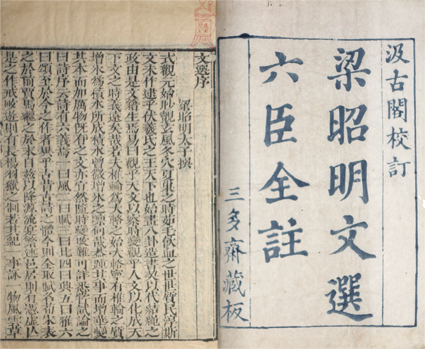 汲古閣校訂
梁昭明文選
六臣全註
三多齋藏板
文選序
梁昭明太子撰
式觀元始眇覿玄風冬穴夏巢之時茹毛飲血之世世質民淳斯
文未作逮乎伏羲氏之王天下也始畫八卦造書契以代結繩之
政由是文籍生焉易曰觀乎天文以察時變觀乎人文以化成天
下文之時義遠矣哉若夫椎輪為大輅之始大輅寧有椎輪之質
增冰為積水所成積水曾微增冰之凜何哉蓋踵其事而增華變
其本而加厲物既有之文亦宜然隨時變改難可詳悉嘗試論之
曰詩序云詩有六義焉一曰風二曰賦三曰比四曰興五曰雅六
曰頌至於今之作者異乎古昔古詩之體今則全取賦名荀宋表
之於前賈馬繼之於末自茲以降源流寔繁述邑居則有憑虛亡
是之作戒畋遊則有長楊羽獵之制若其紀一事詠一物風雲草